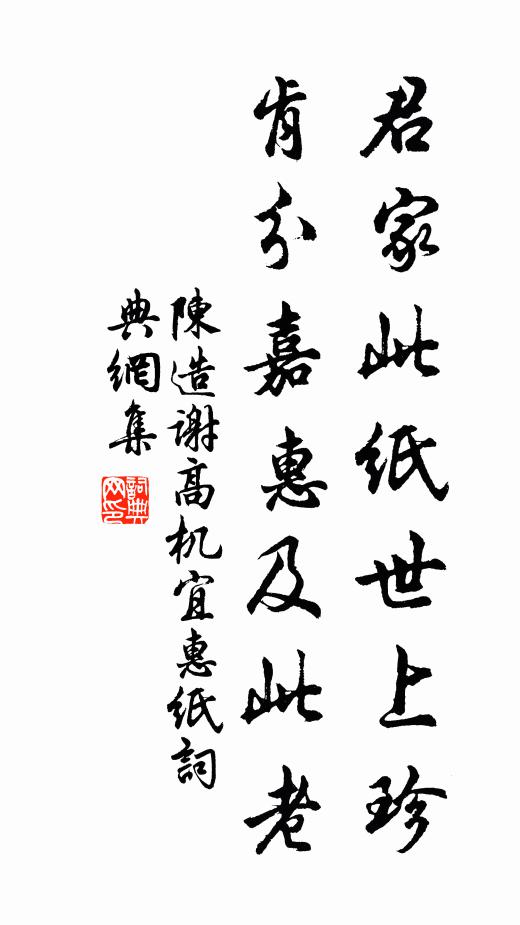 君家此紙世上珍
肯分嘉惠及此老
陳造謝高机宜惠紙詞
典網集
詞典网印